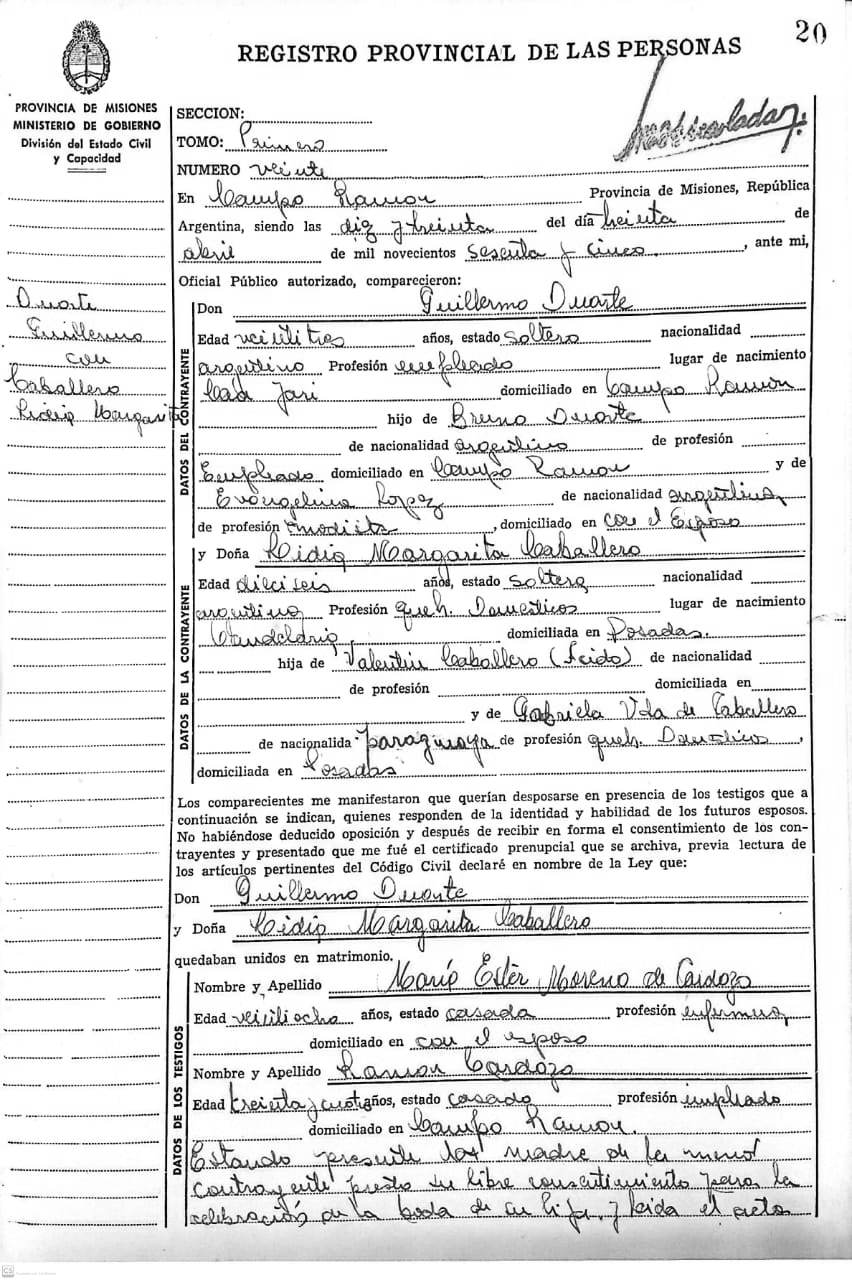 20
REGISTRO PROVINCIAL DE LAS PERSONAS
PROVINCIA DE MISIONES
MINISTERIO DE GOBIERNO
División del Estado Civil
y Capacidad
Duarte
Guillermo
con
Caballero
Lidia Margarita
SECCION:
TOMO: Primero
NUMERO veinte
En Campo Ramon Provincia de Misiones, República
Argentina, siendo las diez y treinta del día treinta de
abril de mil novecientos sesenta y cinco, ante mi,
Oficial Público autorizado, comparecieron:
DATOS DEL CONTRAYENTE
Don Guillermo Duarte
Edad veintitres años, estado soltero nacionalidad
argentino Profesión empleado lugar de nacimiento
domiciliado en Campo Ramon
hijo de Bruno Duarte
de nacionalidad argentino de profesión
Empleado domiciliado en Campo Ramon y de
Evangelina Lopez de nacionalidad argentina
de profesión modista, domiciliado en con el Esposo
DATOS DE LA CONTRAYENTE
y Doña Lidia Margarita Caballero
Edad dieciseis años, estado soltera nacionalidad
argentina Profesión queh. Domesticos lugar de nacimiento
Candelaria domiciliada en Posadas.
hija de Valentin Caballero (Fcido) de nacionalidad
de profesión domiciliada en
y de Gabriela Vda de Caballero
de nacionalida paraguaya de profesión queh. Domesticos,
domiciliada en Posadas
Los comparecientes me manifestaron que querían desposarse en presencia de los testigos que a
continuación se indican, quienes responden de la identidad y habilidad de los futuros esposos.
No habiéndose deducido oposición y después de recibir en forma el consentimiento de los con-
trayentes y presentado que me fué el certificado prenupcial que se archiva, previa lectura de
los artículos pertinentes del Código Civil declaré en nombre de la Ley que:
Don Guillermo Duarte
y Doña Lidia Margarita Caballero
quedaban unidos en matrimonio.
DATOS DE LOS TESTIGOS
Nombre y Apellido María Ester Moreno de Cardozo
Edad veintiocho años, estado casada profesión enfermera
domiciliado en con el esposo
Nombre y Apellido Ramon Cardozo
Edad treinta y años, estado casado profesión empleado
domiciliado en Campo Ramon.
Estando presente la madre de la menor
contrayente presta su libre consentimiento para la
celebración de la boda de su hija, y leida el acta